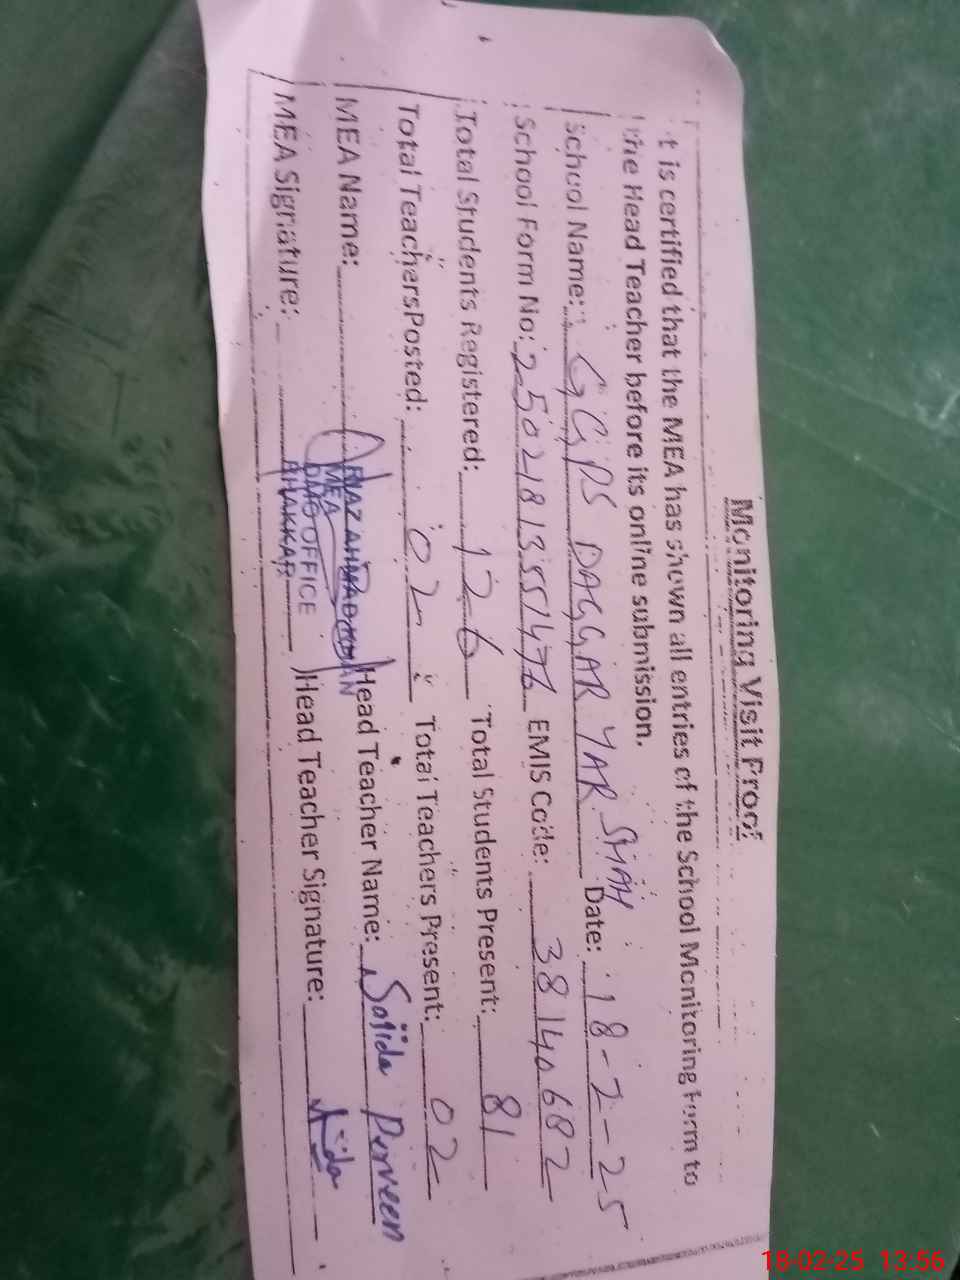 Monitoring Visit Proof
t is certified that the MEA has shown all entries of the School Monitoring Form to
the Head Teacher before its online submission.
School Name: GGPS DAGGAR YAR SHAH Date: 18-2-25
School Form No: EMIS Code: 38140682
Total Students Registered: 126 Total Students Present: 81
Total Teachers Posted: 02 Total Teachers Present: 02
MEA Name: RIAZ AHMAD KHAN Head Teacher Name: Sajida Perveen
MEA
DMO OFFICE
BHAKKAR
MEA Signature: Head Teacher Signature:
18-02-25 13:56